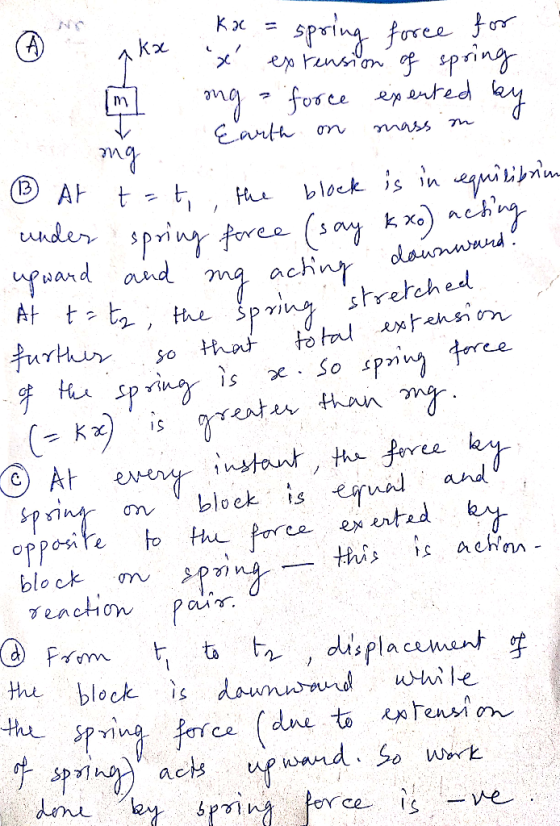 (A) Kx Kx = spring force for
'x' extension of spring
m mg = force exerted by
Earth on mass m
mg
(B) At t = t₁, the block is in equilibrium
under spring force (say kx₀) acting
upward and mg acting downward.
At t = t₂, the spring stretched
further so that total extension
of the spring is x. So spring force
(= Kx) is greater than mg.
(C) At every instant, the force by
spring on block is equal and
opposite to the force exerted by
block on spring — this is action-
reaction pair.
(d) From t₁ to t₂, displacement of
the block is downward while
the spring force (due to extension
of spring) acts upward. So work
done by spring force is -ve.